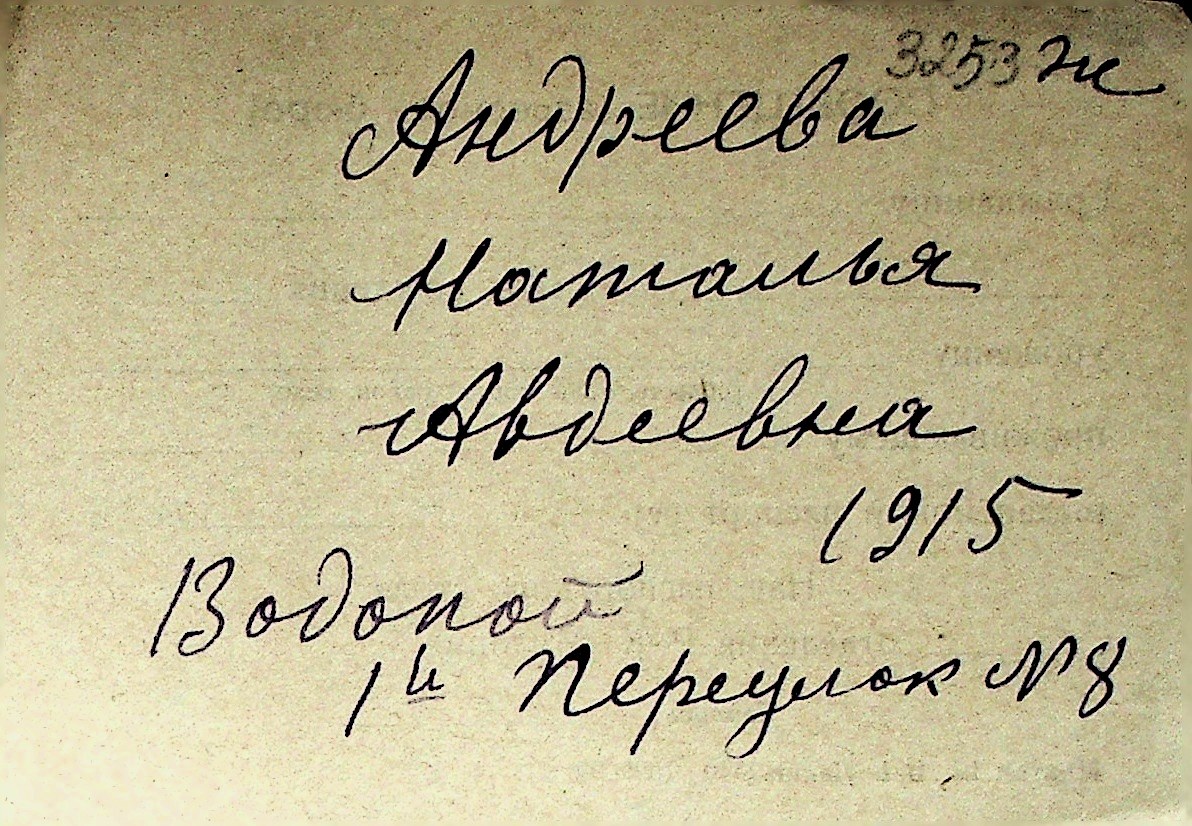 3253 ж
Андреева
Наталья
Авдеевна
1915
Водопой
1й Переулок №8